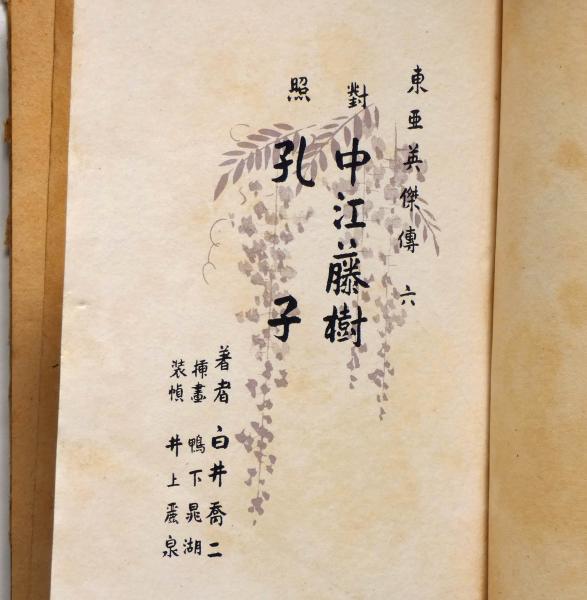 東亜英傑傳 六
對照
中江藤樹
孔子
著者 白井喬二
挿畫 鴨下晁湖
装幀 井上麗泉